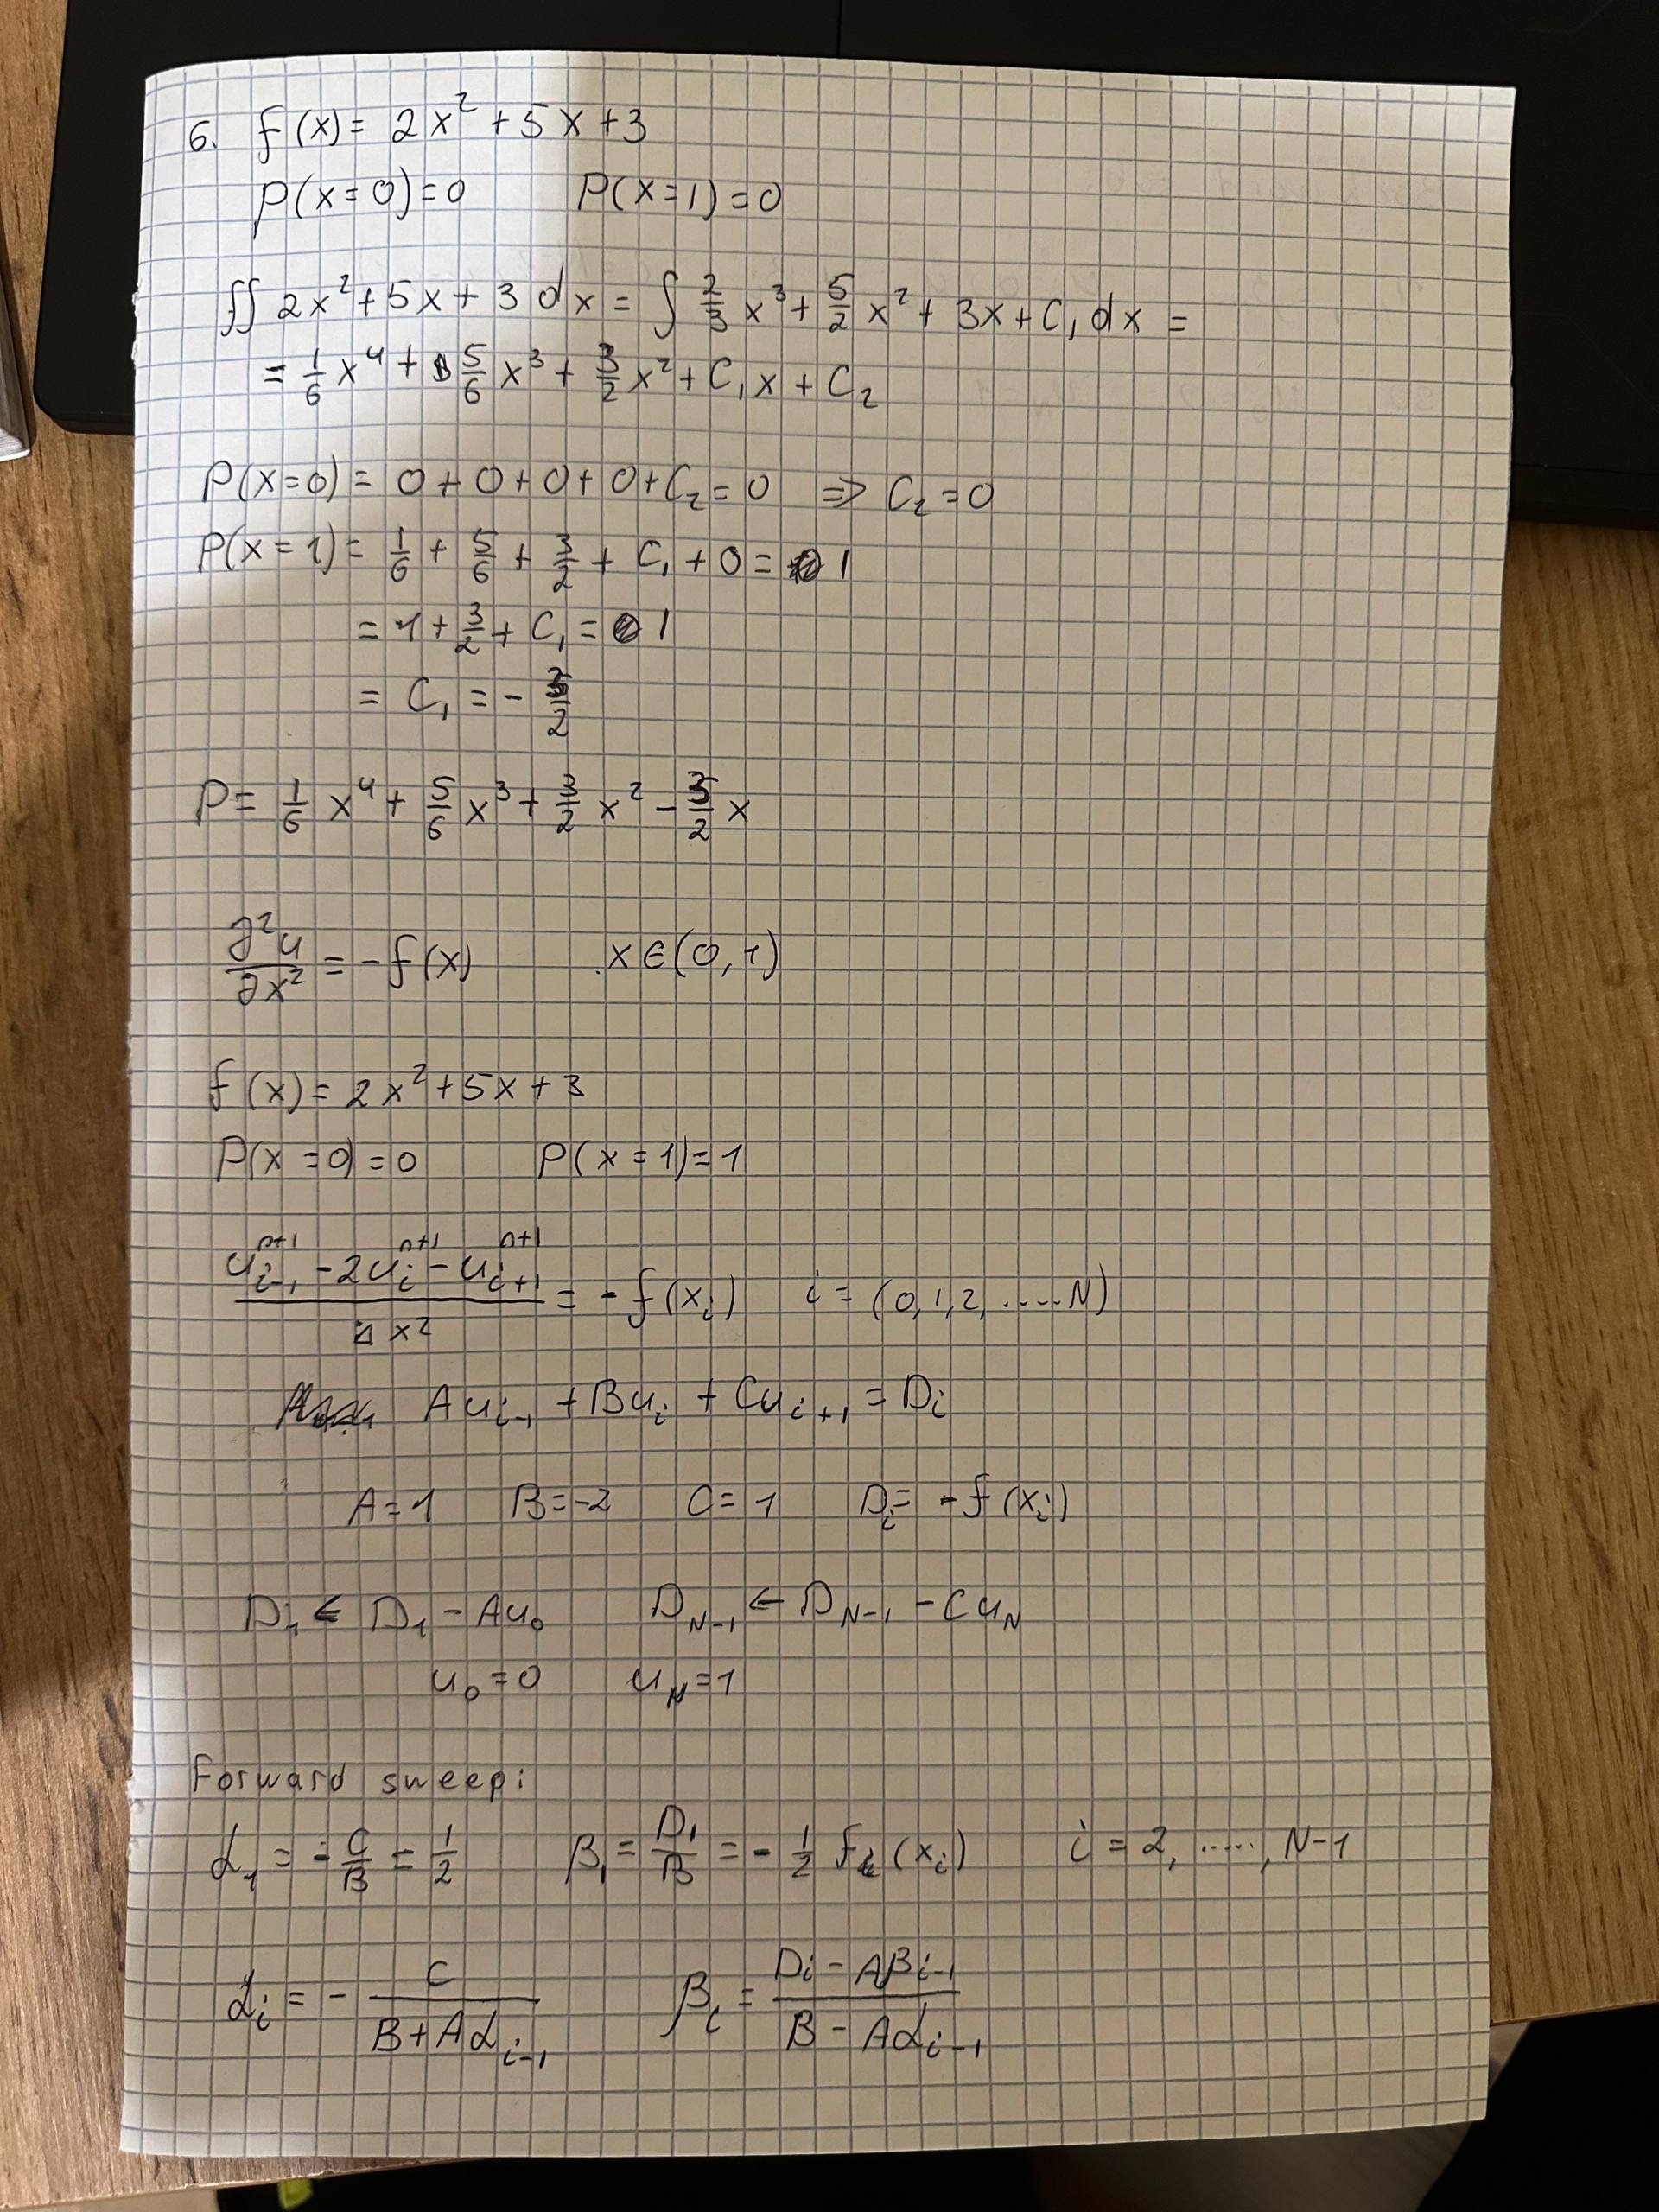 6. f(x) = 2x² + 5x + 3
P(x=0)=0 P(x=1)=0
∬ 2x² + 5x + 3 dx = ∫ 2/3 x³ + 5/2 x² + 3x + C₁ dx =
= 1/6 x⁴ + 5/6 x³ + 3/2 x² + C₁x + C₂
P(x=0) = 0 + 0 + 0 + 0 + C₂ = 0 ⇒ C₂ = 0
P(x=1) = 1/6 + 5/6 + 3/2 + C₁ + 0 = 1
= 1 + 3/2 + C₁ = 1
= C₁ = - 3/2
P = 1/6 x⁴ + 5/6 x³ + 3/2 x² - 3/2 x
∂²u/∂x² = -f(x) x ∈ (0,1)
f(x) = 2x² + 5x + 3
P(x=0)=0 P(x=1)=1
(uᵢ₋₁ⁿ⁺¹ - 2uᵢⁿ⁺¹ - uᵢ₊₁ⁿ⁺¹)/Δx² = -f(xᵢ) i = (0,1,2, ..... N)
Auᵢ₋₁ + Buᵢ + Cuᵢ₊₁ = Dᵢ
A = 1 B = -2 C = 1 Dᵢ = -f(xᵢ)
D₁ ← D₁ - Au₀ D_N-1 ← D_N-1 - Cu_N
u₀ = 0 u_N = 1
Forward sweep:
α₁ = - C/B = 1/2 β₁ = D₁/B = - 1/2 f(xᵢ) i = 2, ....., N-1
αᵢ = - C/(B + Aαᵢ₋₁) βᵢ = (Dᵢ - Aβᵢ₋₁)/(B - Aαᵢ₋₁)